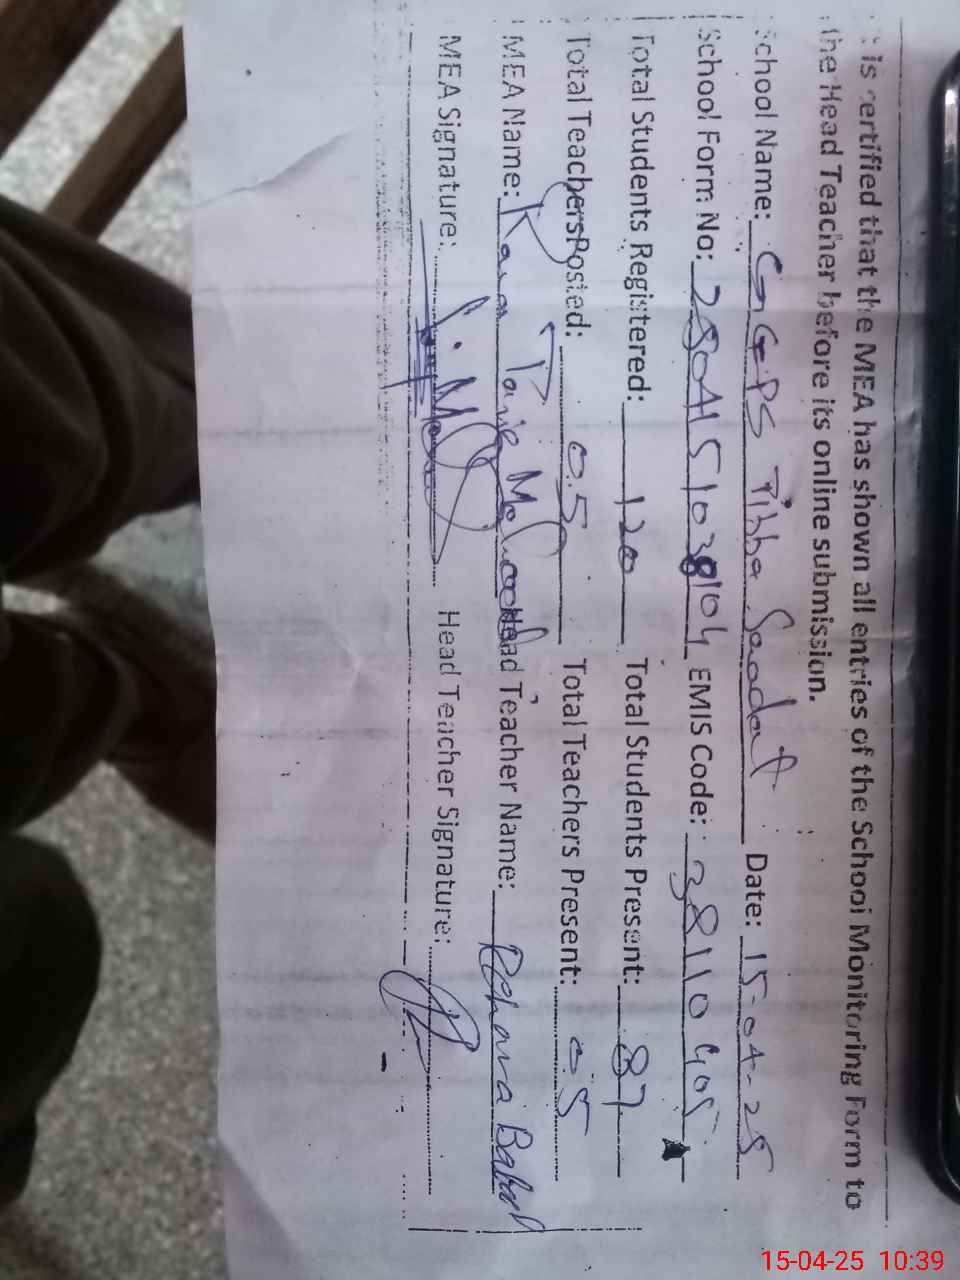 It is certified that the MEA has shown all entries of the School Monitoring Form to
the Head Teacher before its online submission.
School Name: GGPS Tibba Saadat Date: 15-04-25
School Form No: EMIS Code: 38110405
Total Students Registered: 120 Total Students Present: 87
Total Teachers Posted: 05 Total Teachers Present: 05
MEA Name: Rana Tariq Mehmood Head Teacher Name: Rehana
MEA Signature: Head Teacher Signature:
15-04-25 10:39